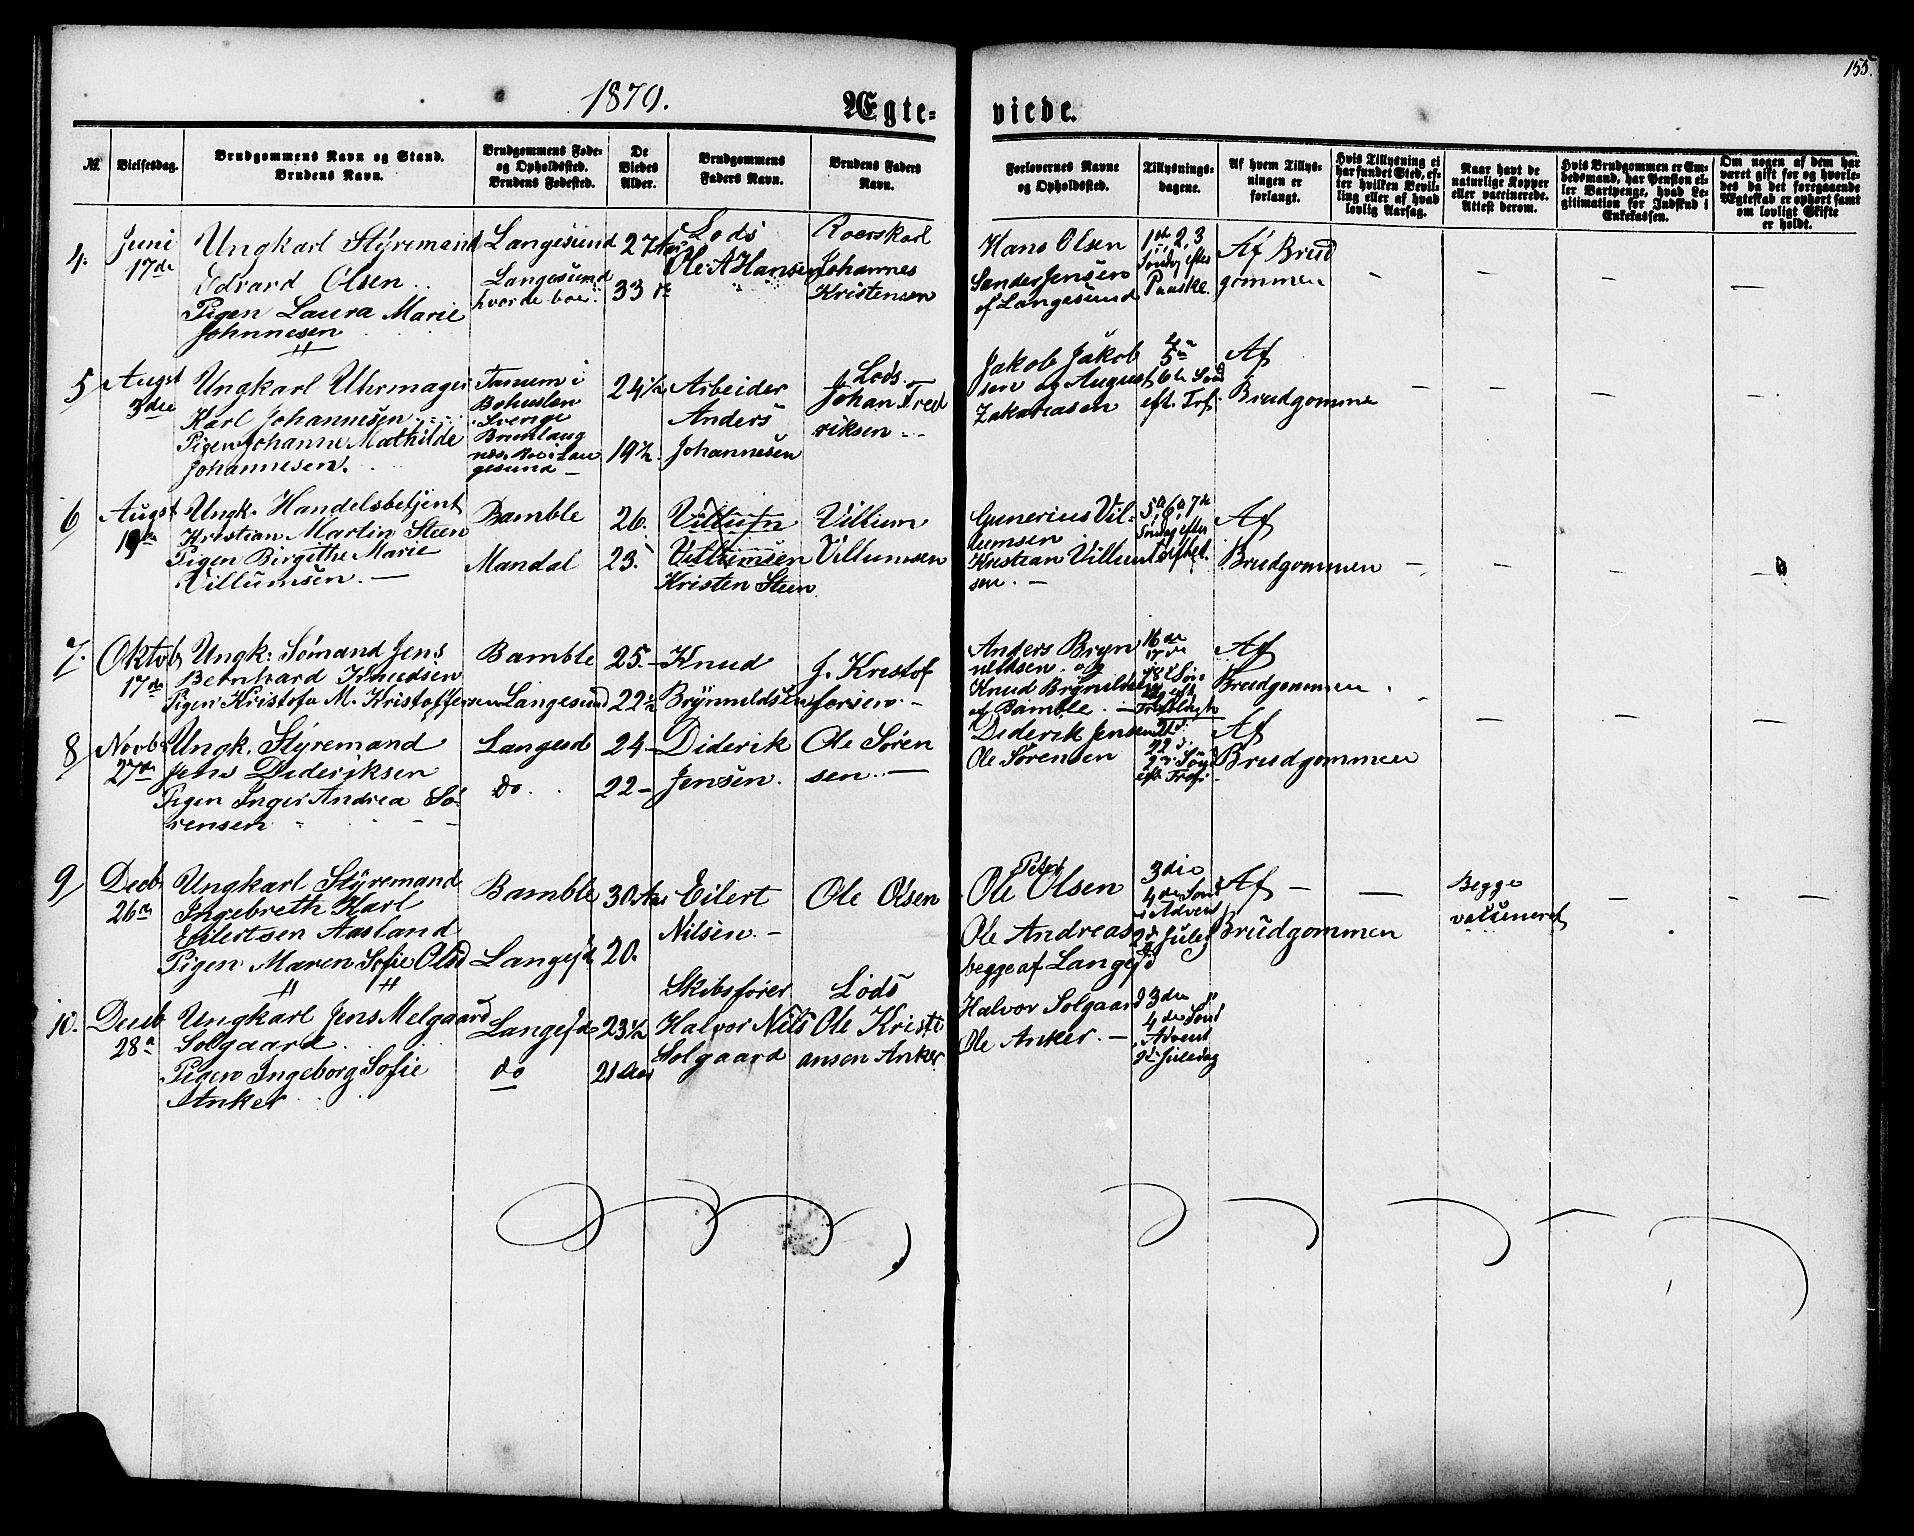 155.
1879.
Ægte-
viede.
№.
Vielsesdag.
Brudgommens Navn og Stand.
Brudens Navn.
Brudgommens Føde-
og Opholdssted.
Brudens Fødested.
De
Viedes
Alder.
Brudgommens
Faders Navn.
Brudens Faders
Navn.
Forlovernes Navne
og Opholdssted.
Tillysnings-
dagene.
Af hvem Tillys-
ningen er
forlangt.
Hvis Tillysning ei
har fundet Sted, ef-
ter hvilken Bevil-
ling eller af hvad
lovlig Aarsag.
Naar havt de
naturlige Kopper
eller vaccinerede.
Attest derom.
Hvis Brudgommen er Em-
bedsmand, har Pension el-
ler Vartpenge, hvad Le-
gitimation for Indskud i
Enkekassen.
Om nogen af dem har
været gift før og hvorle-
des da det foregaaende
Ægteskab er ophørt samt
om lovligt Skifte
er holdt.
4.
Juni
17de
Ungkarl Styremand
Edvard Olsen
Pigen Laura Marie
Johnnesen
Langesund
Langesund
hvor de boe.
27 Aar
33 do
Lods
Ole A Hansen
Roerskarl
Johannes
Kristensen
Hans Olsen
Sander Jensen
af Langesund
1ste, 2, 3
Søndag efter
Paaske.
Af Brud
gommen
5
Augst
3die
Ungkarl Uhrmager
Karl Johannesen
Pigen Johanne Mathilde
Johannesen.
Tanum i
Bohuslen
Sverige
Brunlaug
næs. Boe i Lan
gesund
24½
19½.
Arbeider
Anders
Johannesen
Lods
Johan Fred
riksen
Jakob Jakob
sen og August
Zakariasen
4
5te
6te Sønd
eft. Tref.
Af
Brudgomme
6
Augst
19de
Ungk. Handelsbetjent
Kristian Martin Steen
Pigen Birgithe Marie
Villumsen.
Bamble
Mandal
26.
23.
Villum
Villumsen
Kristen Steen
Villum
Villumsen
Gunerius Vil-
lumsen
Kristian Villum
sen.
5te, 6te, 7de
Søndag efter
Trefhet.
Af
Brudgommen
7.
Oktob
17de
Ungk. Sømand Jens
Bernhard Knudsen
Pigen Kristofa M. Kristoffersen
Bamble
Langesund
25.
22½
Knud
Brynnildsen
J. Kristof
fersen
Anders Bryn
nildsen og
Knud Brynnildsen
af Bamble.
16de
17de
18de Søn-
dag eft
Af
Brudgommen.
8
Novbr
27de
Ungk. Styremand
Jens Dideriksen
Pigen Inger Andrea Sø-
rensen
Langesd
Do
24
22
Diderik
Jensen.
Ole Søren
sen.
Diderik Jensen
Ole Sørensen
21d
22d.
23 Sønd
eft Tref.
Af
Brudgommen
9
Decb
26de
Ungkarl Styremand
Ingebreth Karl
Eilertsen Aasland
Pigen Maren Sofie Olsd
Bamble
Langesd
30 Aar
20.
Eilert
Nilsen.
Ole Olsen
Peter
Ole Olsen
Ole Andreas
begge af Langesd
3die
4de Sønd
i Advent
2d Juled
Af
Brudgommen
Begge
vaksineret
10.
Decb
28de
Ungkarl Jens Melgaard
Solgaard
Pigen Ingeborg Sofie
Anker
Langesd
do
23½
21 Aar
Skibsfører
Halvor Nils
Solgaard
Lods
Ole Kristi
ansen Anker
Halvor Solgaard
Ole Anker.
3die
4de Sønd
i Advent
2d Juledag